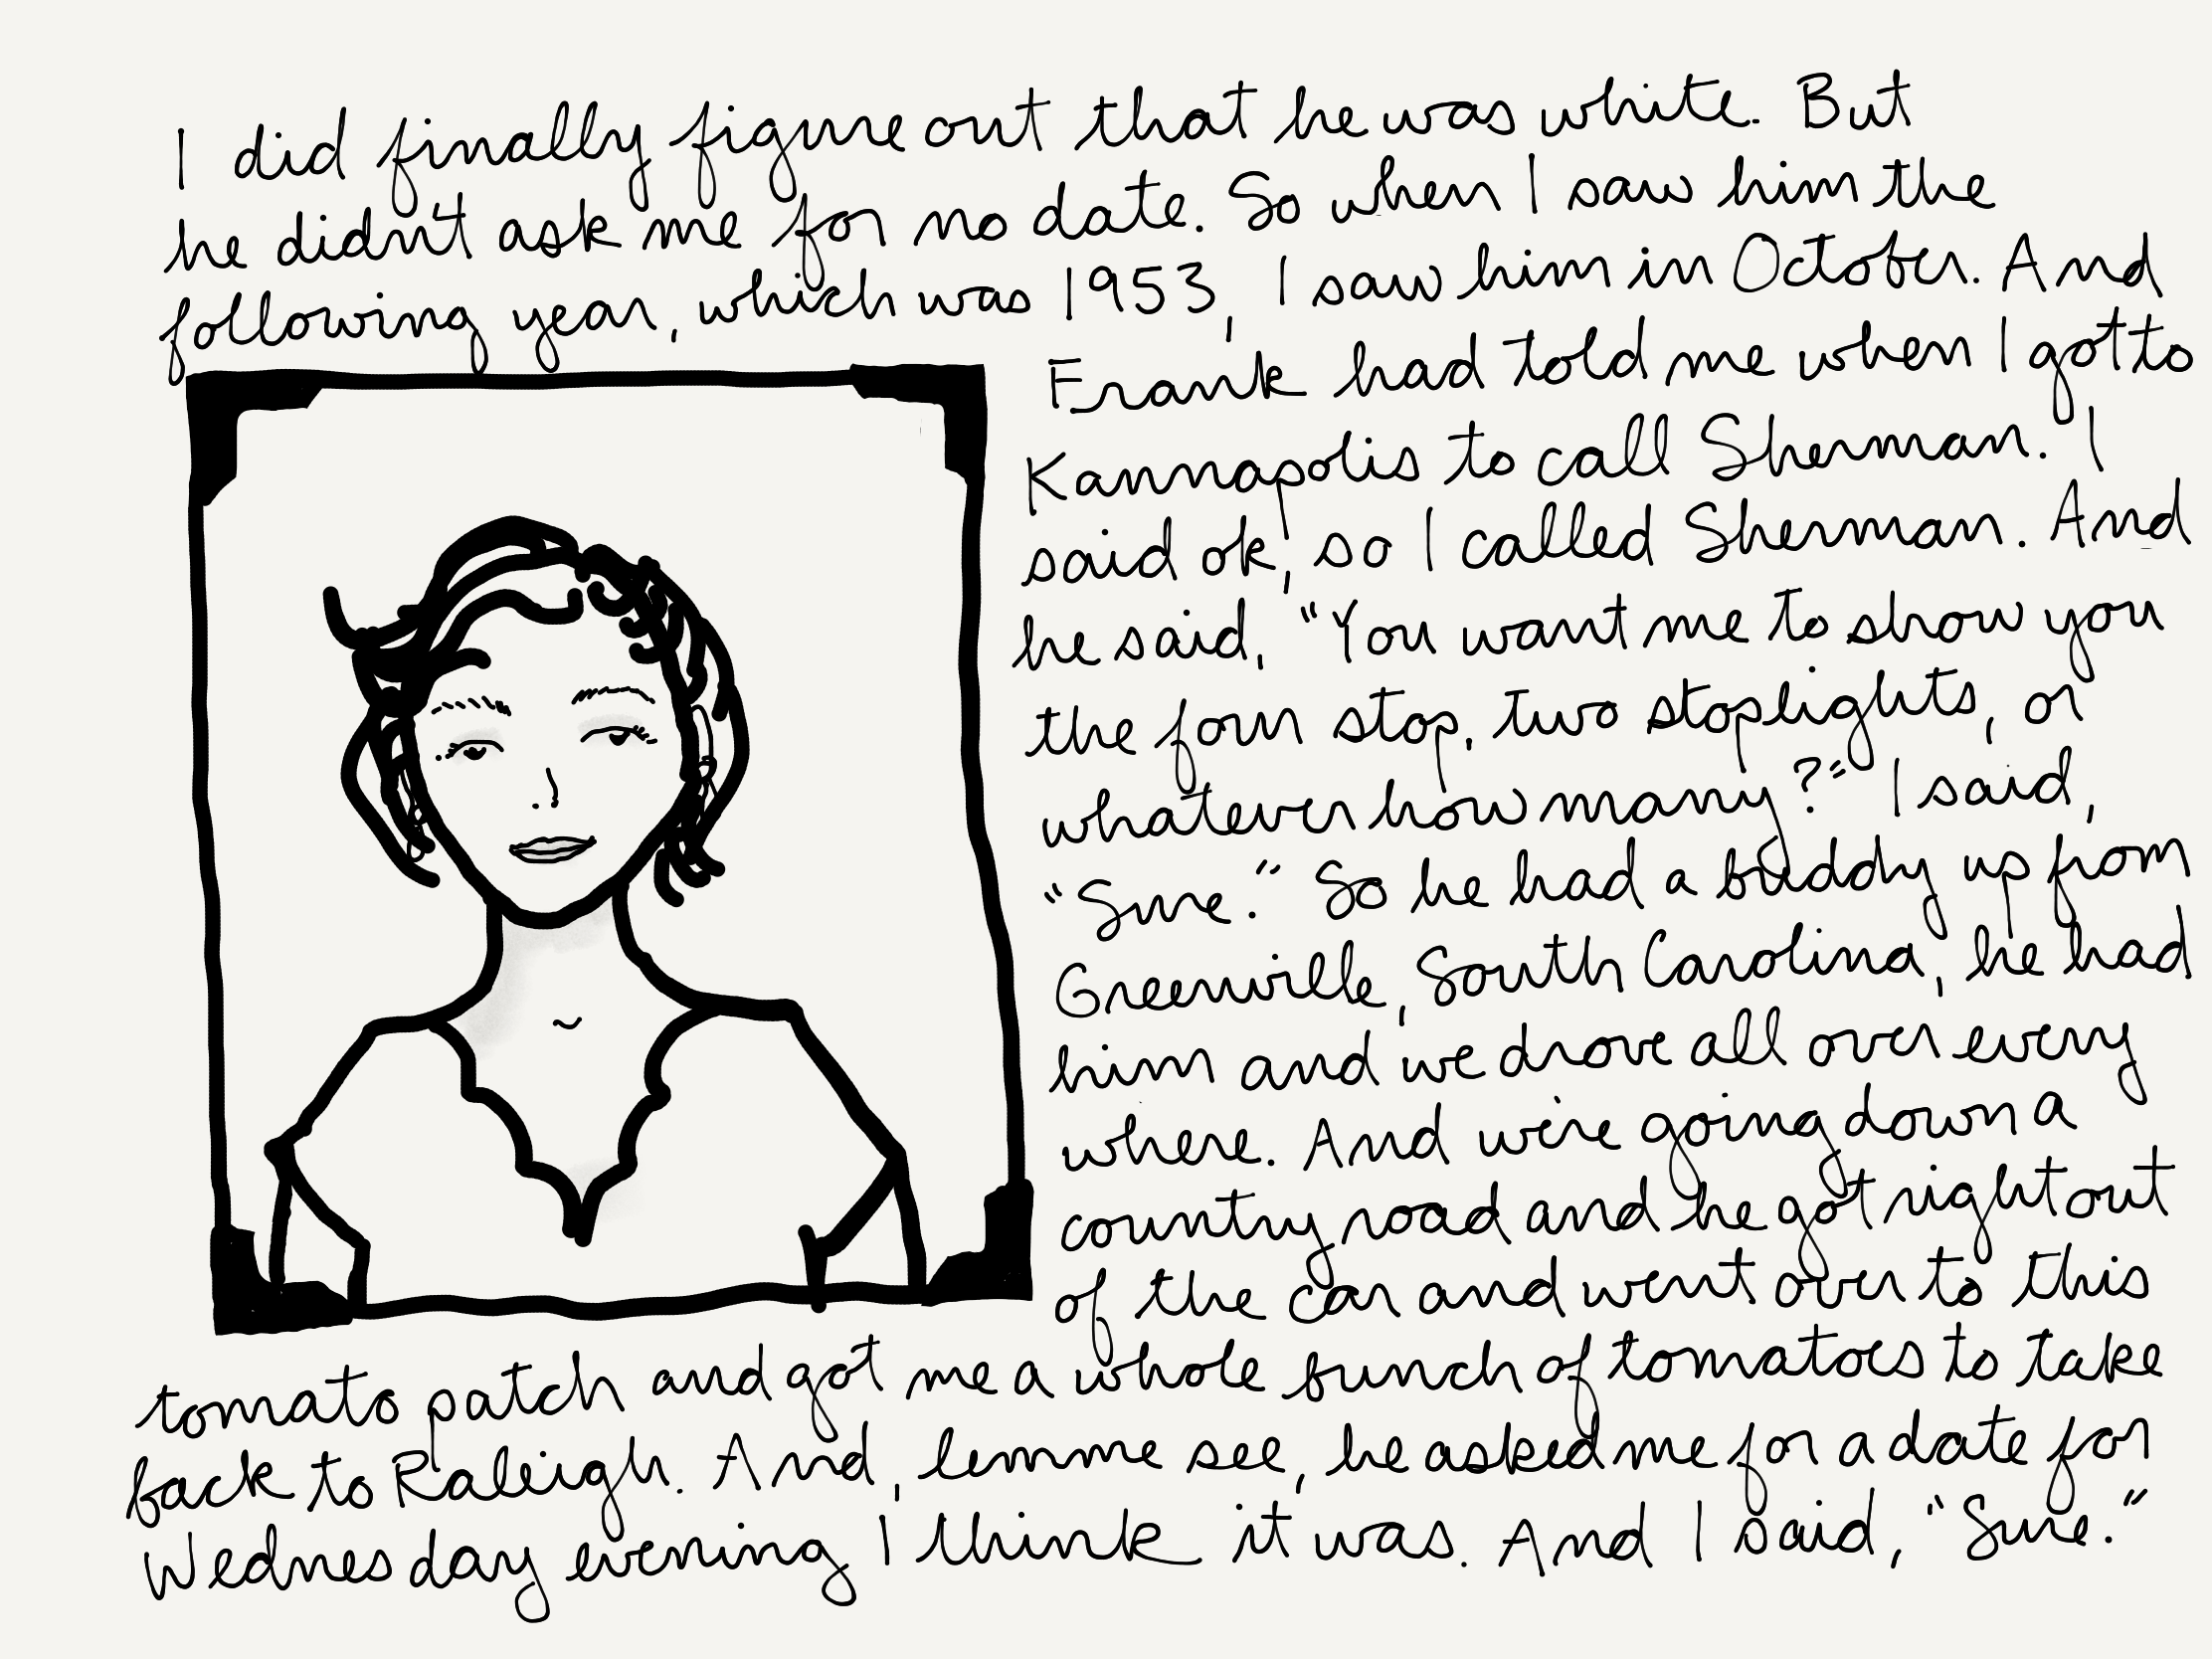 I did finally figure out that he was white. But
he didn't ask me for no date. So when I saw him the
following year, which was 1953, I saw him in October. And
Frank had told me when I got to
Kannapolis to call Sherman. I
said ok, so I called Sherman. And
he said, "You want me to show you
the four stop, two stoplights, or
whatever how many?" I said,
"Sure." So he had a buddy up from
Greenville, South Carolina, he had
him and we drove all over every
where. And we're going down a
country road and he got right out
of the car and went over to this
tomato patch and got me a whole bunch of tomatoes to take
back to Raleigh. And, lemme see, he asked me for a date for
Wednesday evening I think it was. And I said, "Sure."